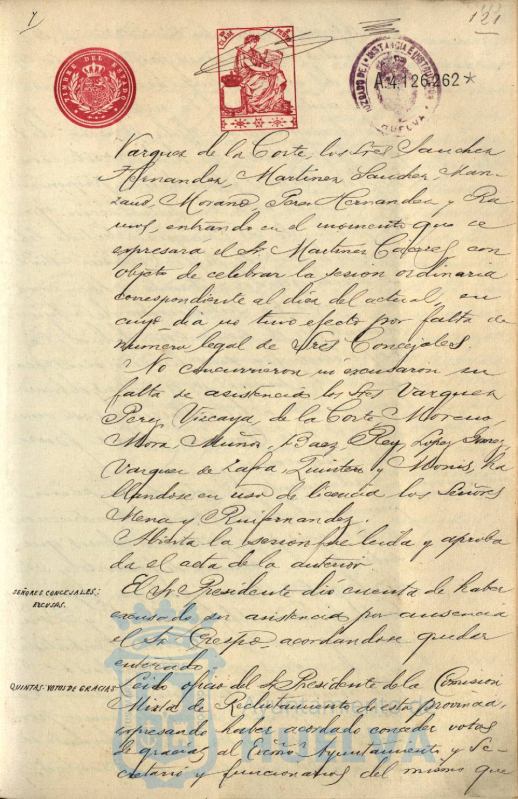 121
TIMBRE DEL ESTADO
A.4.126.262*
HUELVA
Vazquez de la Corte, los Sres Sanchez
Hernandez, Martinez Sanchez, Man-
zano, Morano, Perez Hernandez y Ra
mos, entrando en el momento que se
expresara el Sr Martinez Caceres con
objeto de celebrar la sesion ordinaria
correspondiente al dia del actual, en
cuyo dia no tuvo efecto por falta de
numero legal de Sres Concejales
No concurrieron ni excusaron su
falta de asistencia los Sres Vazquez
Perez, Vizcaya, de la Corte Moreno,
Mora, Muñoz, Baez, Rey, Lopez
Vazquez de Zafra, Quintero y Monis, ha
llandose en uso de licencia los Señores
Mena y Ruifernandez.
Abierta la sesion fue leida y aproba
da el acta de la anterior.
SEÑORES CONCEJALES:
EXCUSAS.
El Sr Presidente dió cuenta de haber
excusado su asistencia por ausencia
el Sr Crespo, acordandose quedar
enterado.
QUINTAS-VOTOS DE GRACIAS
Leido oficio del Sr Presidente de la Comision
Mixta de Reclutamiento de esta provincia,
expresando haber acordado conceder votos
de gracias al Excmo Ayuntamiento y Se-
cretario y funcionarios del mismo que
HUELVA